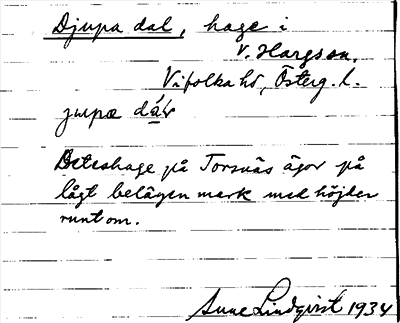 Djupa dal, hage i
V. Hargs sn.
Vifolka hd, Österg. l.
jupa
Beteshage på Torsnäs ägor på
lågt belägen mark med höjder
runt om.
Sune Lindqvist 1934